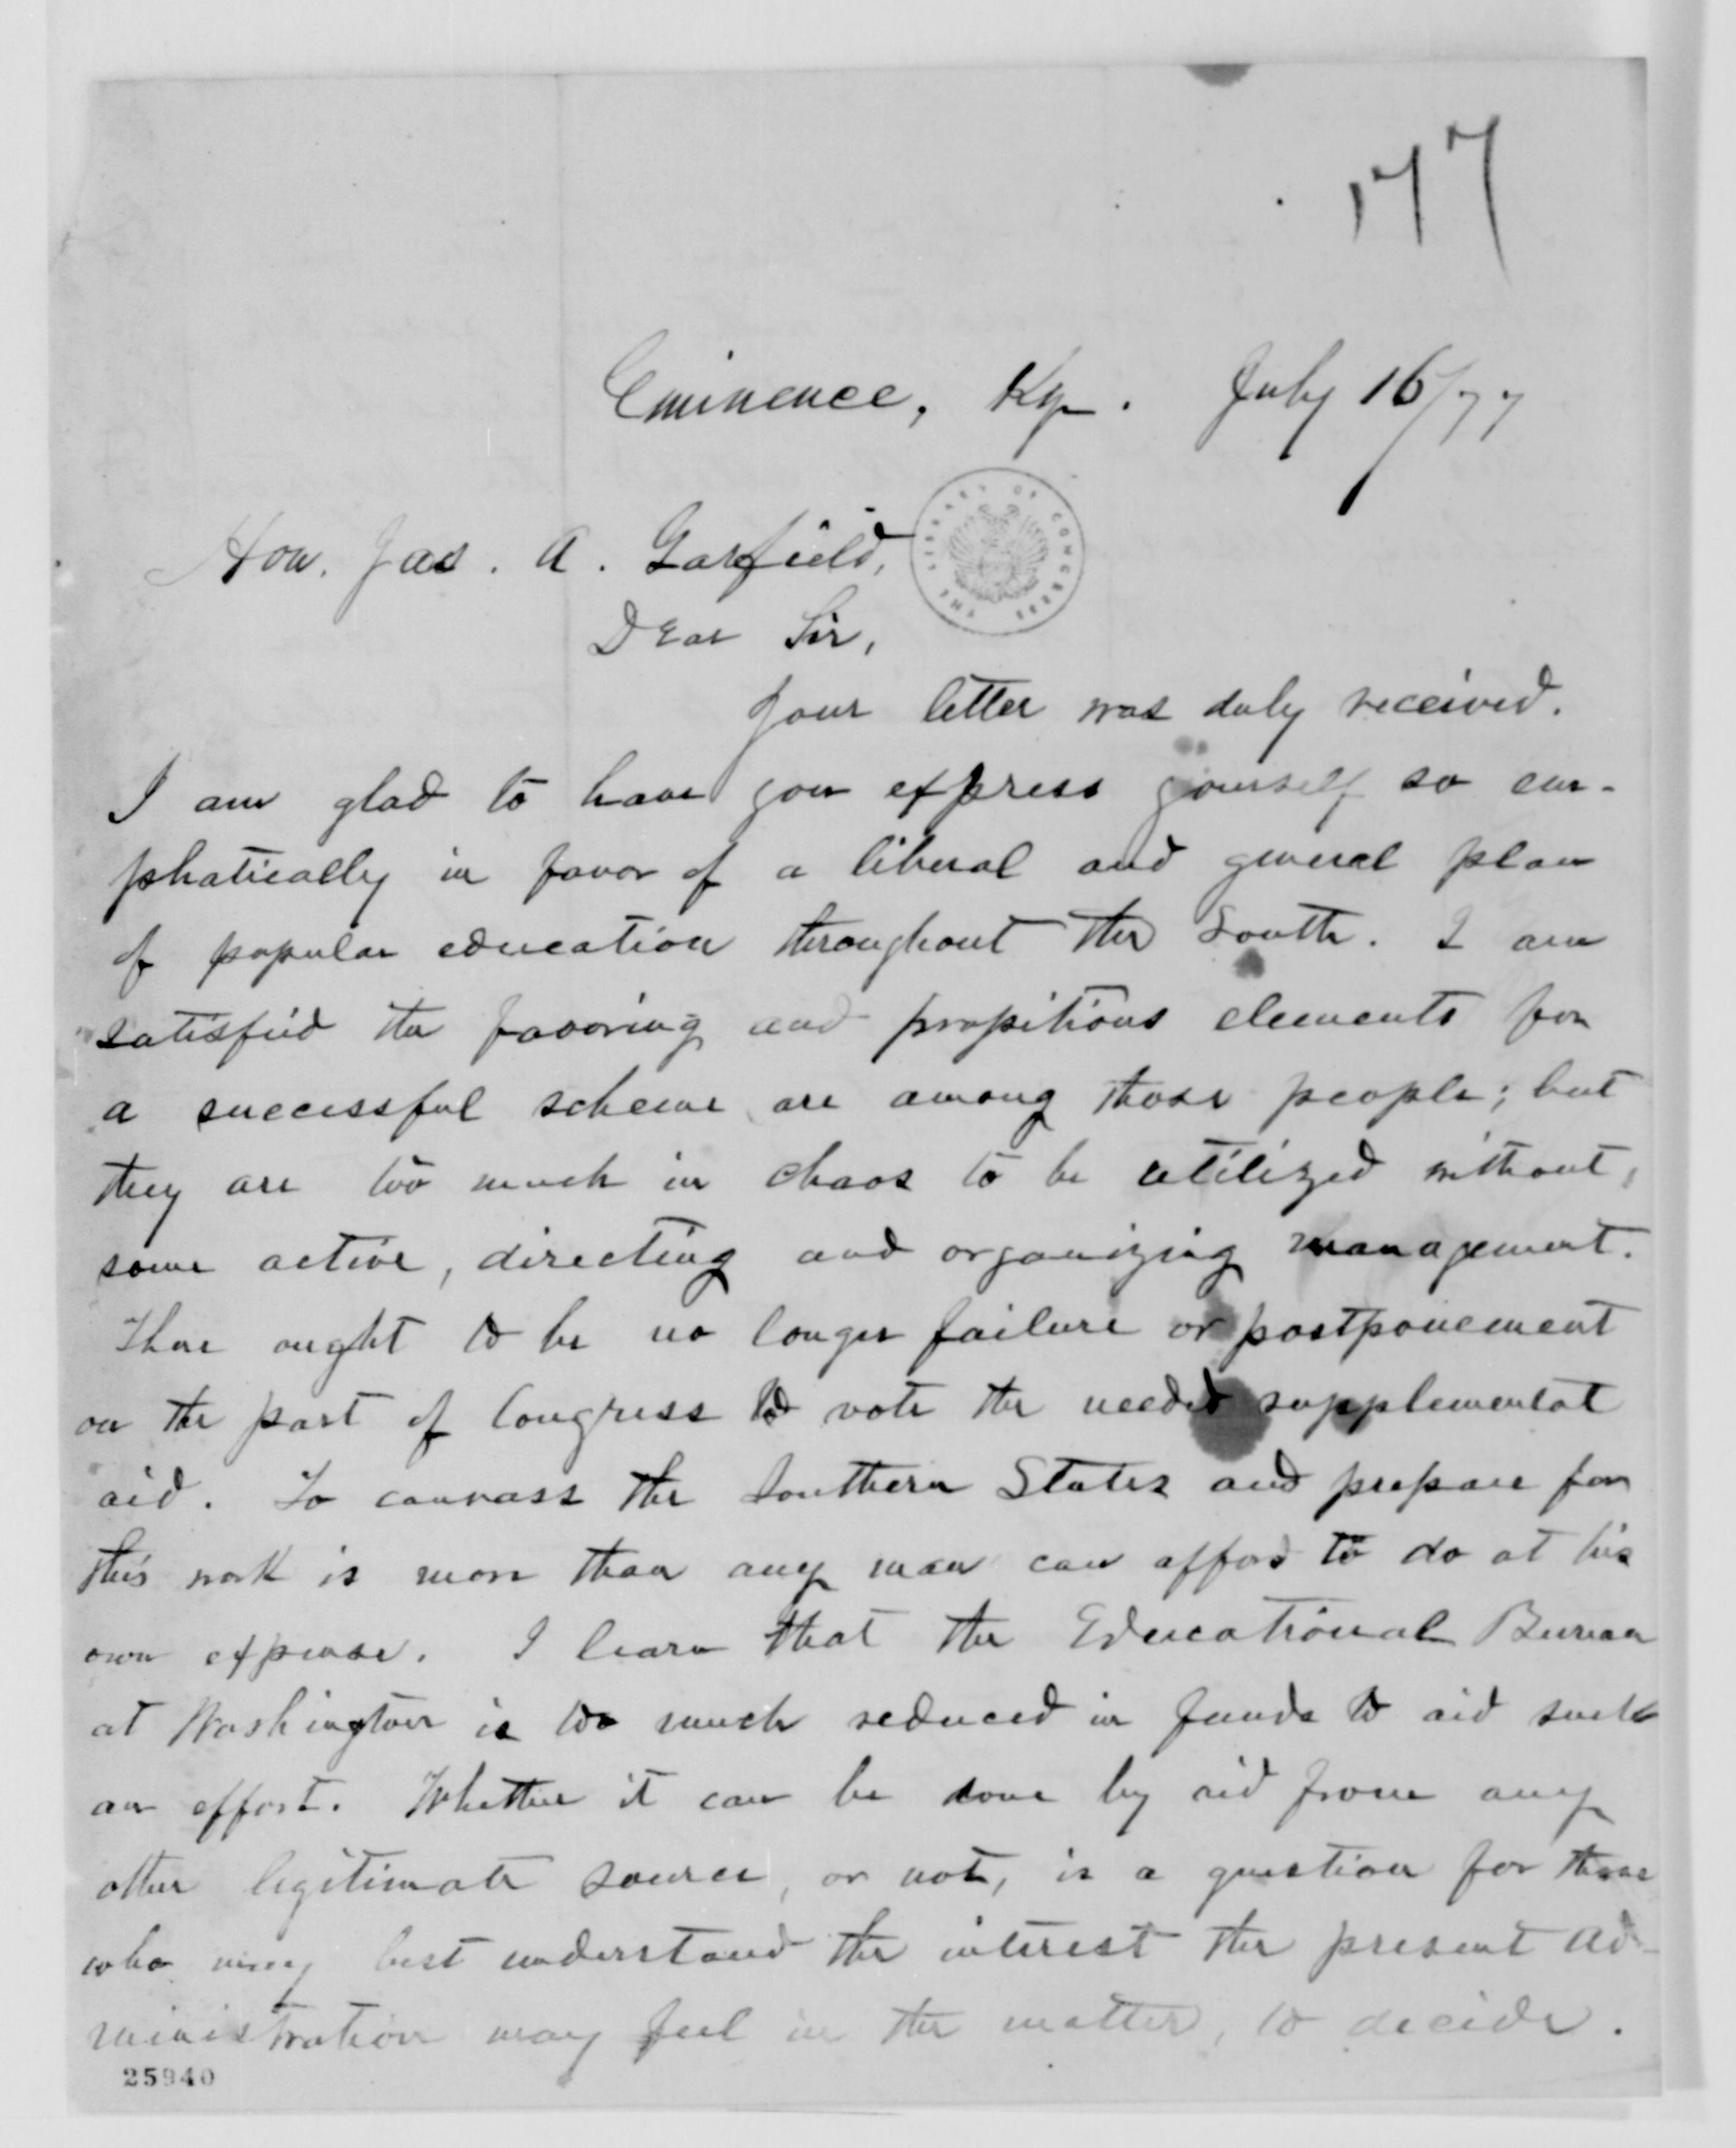 177
Eminence, Ky. July 16/77
Hon. Jas. A. Garfield,
THE LIBRARY OF CONGRESS
Dear Sir,
Your letter was duly received.
I am glad to have you express yourself so em-
phatically in favor of a liberal and general plan
of popular education throughout the South. I am
satisfied the favoring and propitious elements for
a successful scheme are among those people; but
they are too much in chaos to be utilized without
some active, directing and organizing management.
There ought to be no longer failure or postponement
on the part of Congress to vote the needed supplemental
aid. To canvass the Southern States and prepare for
this work is more than any man can afford to do at his
own expense. I learn that the Educational Bureau
at Washington is too much reduced in funds to aid such
an effort. Whether it can be done by aid from any
other legitimate source, or not, is a question for those
who may best understand the interest the present ad-
ministration may feel in the matter, to decide.
25940